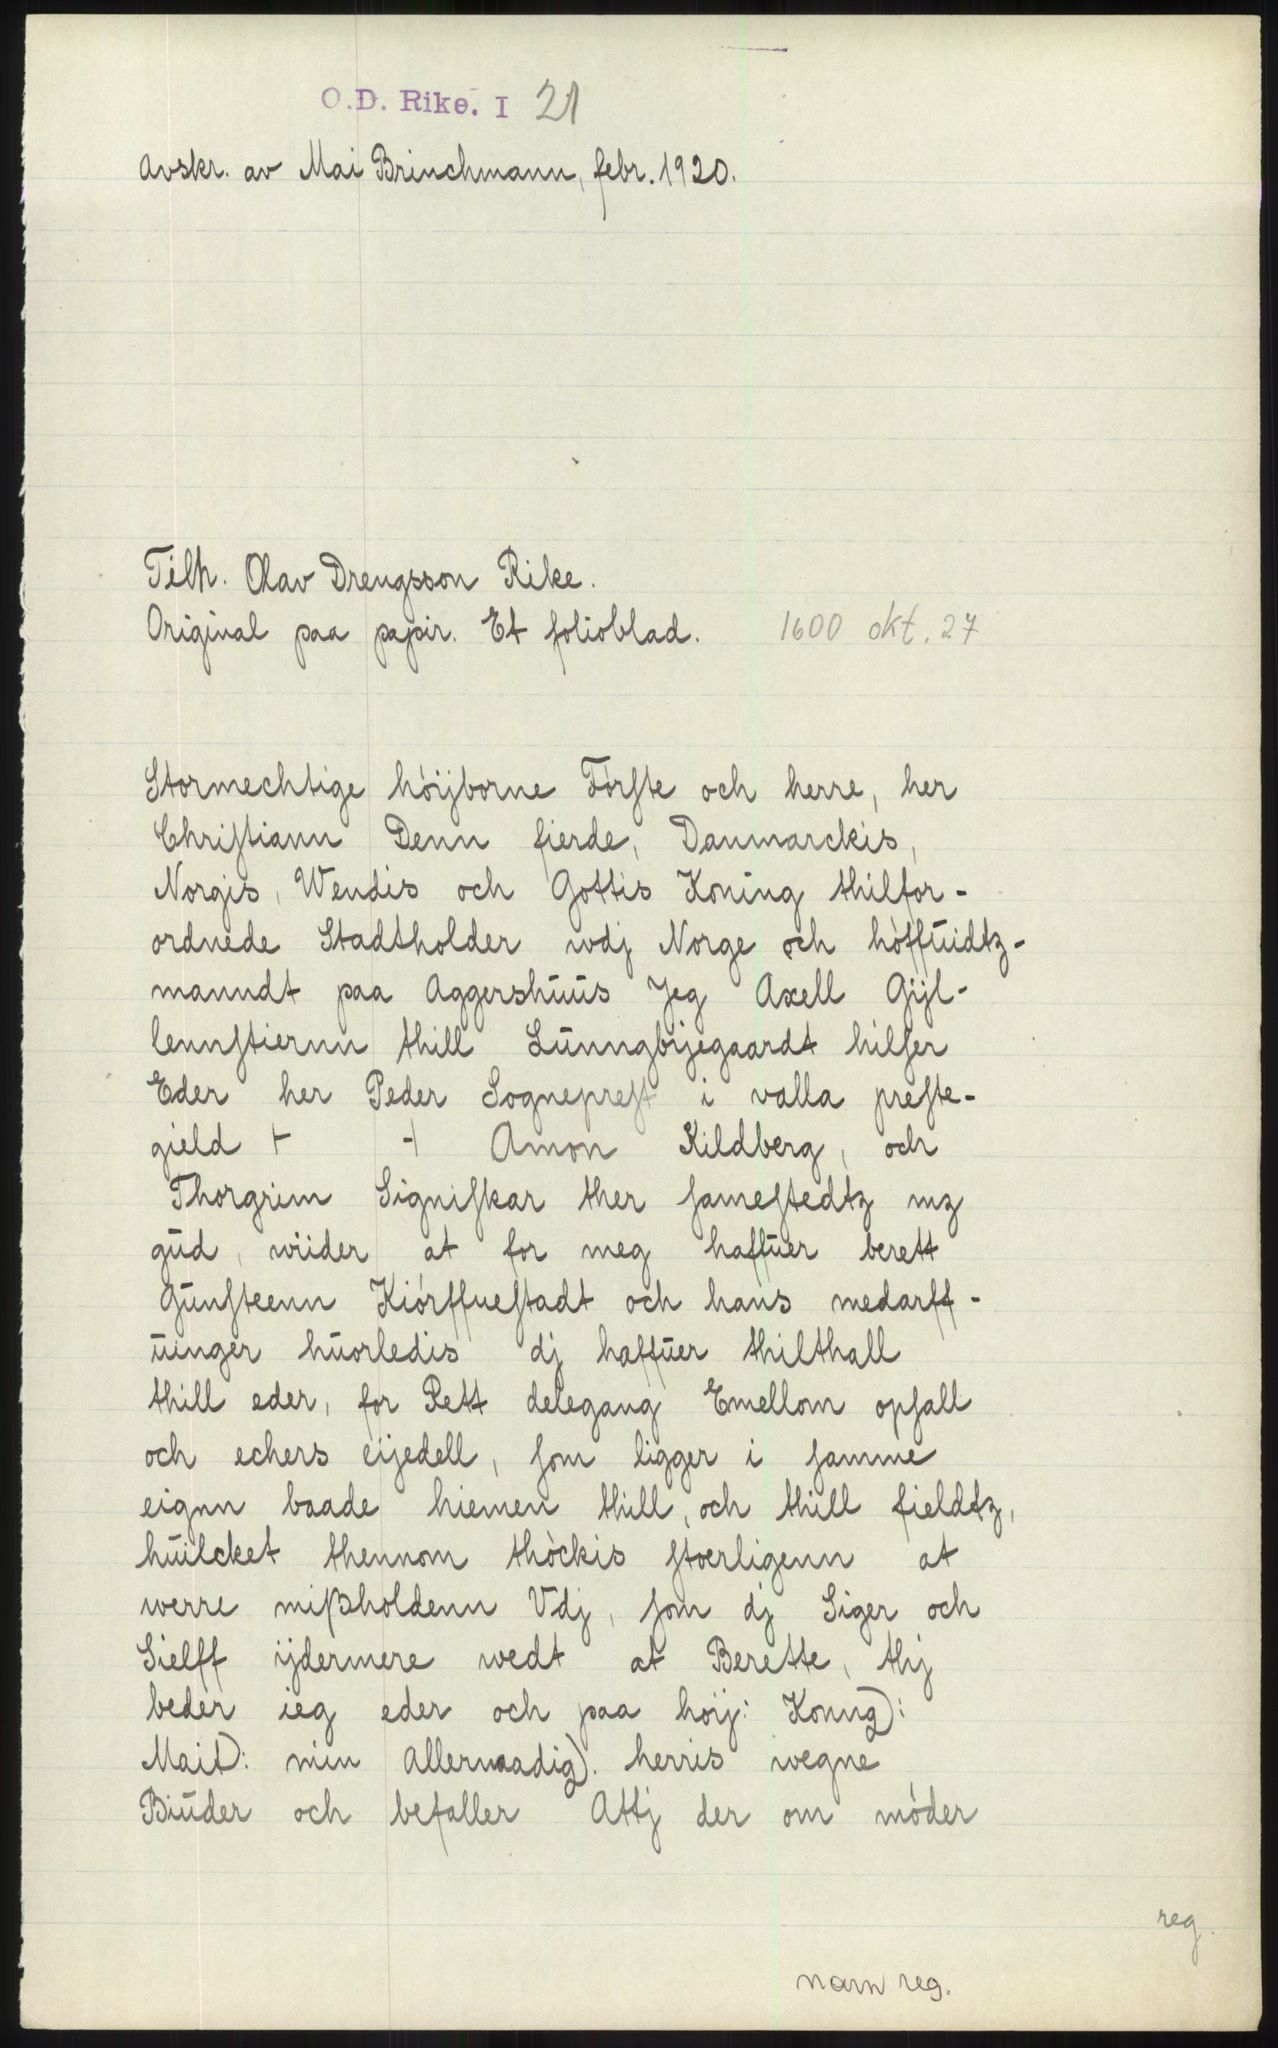 O.D. Rike. I 21
Avskr. av Mai Brinchmann, febr. 1920.
Tilh. Olav Drengsson Rike.
Original paa papir. Et folioblad. 1600 okt. 27
Stormechtige höijborne Förſte och herre, her
Chriſtiann Denn fierde, Danmarckis,
Norgis, Wendis och Gottis Koning thilfor-
ordnede Stadtholder wdj Norge och höffuidtz-
manndt paa Aggershuus Jeg Axell Gijl-
lennſtiernn thill Lunngbijegaardt hilſer
Eder her Peder Sognepreſt i valla preſte-
gield + + Amon Kildberg, och
Thorgrim Signiſkar ther ſameſtedtz mz
gud, wiider at for meg haffuer berett
Gunſteenn Kiörffueſtadt och hans medarff-
uinger huorledis dj haffuer thilthall
thill eder, for Rett delegang Emellom opſall
och echers eijedell, ſom ligger i ſamme
eignn baade hiemen thill, och thill fieldtz,
huilcket thennom thöckis ſtoerligenn at
werre mißholdenn Vdj, ſom dj Siger och
Sielff ijdermere wedt at Berette, thj
beder ieg eder och paa höij: Konng):
Mait): min Allernaadig). herris wegne
Biuder och befaller Attj der om möder
reg.
navn reg.